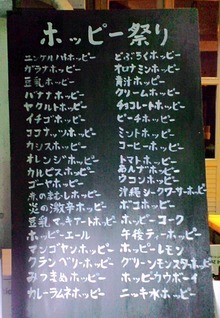 ホッピー祭り
ニンゲルハイホッピー
ガラナホッピー
豆乳ホッピー
バナナホッピー
ヤクルトホッピー
イチゴホッピー
ココナッツホッピー
カシスホッピー
オレンジホッピー
カルピスホッピー
ゴーヤホッピー
赤まむしホッピー
炎の激辛ホッピー
豆乳マッキアートホッピー
ホッピーエール
マンゴヤンホッピー
クランベリーホッピー
みつまめホッピー
カレーラムネホッピー
どぶろくホッピー
オロナミンホッピー
青汁ホッピー
クリームホッピー
チョコレートホッピー
ピーチホッピー
ミントホッピー
コーヒーホッピー
トマトホッピー
あんずホッピー
ウコンホッピー
沖縄シークワーサーホッピー
ボコホッピー
ホッピーコーク
午後ティーホッピー
ホッピーレモン
グリーンモンスターホッピー
ホッピーカウボーイ
ニッキ水ホッピー